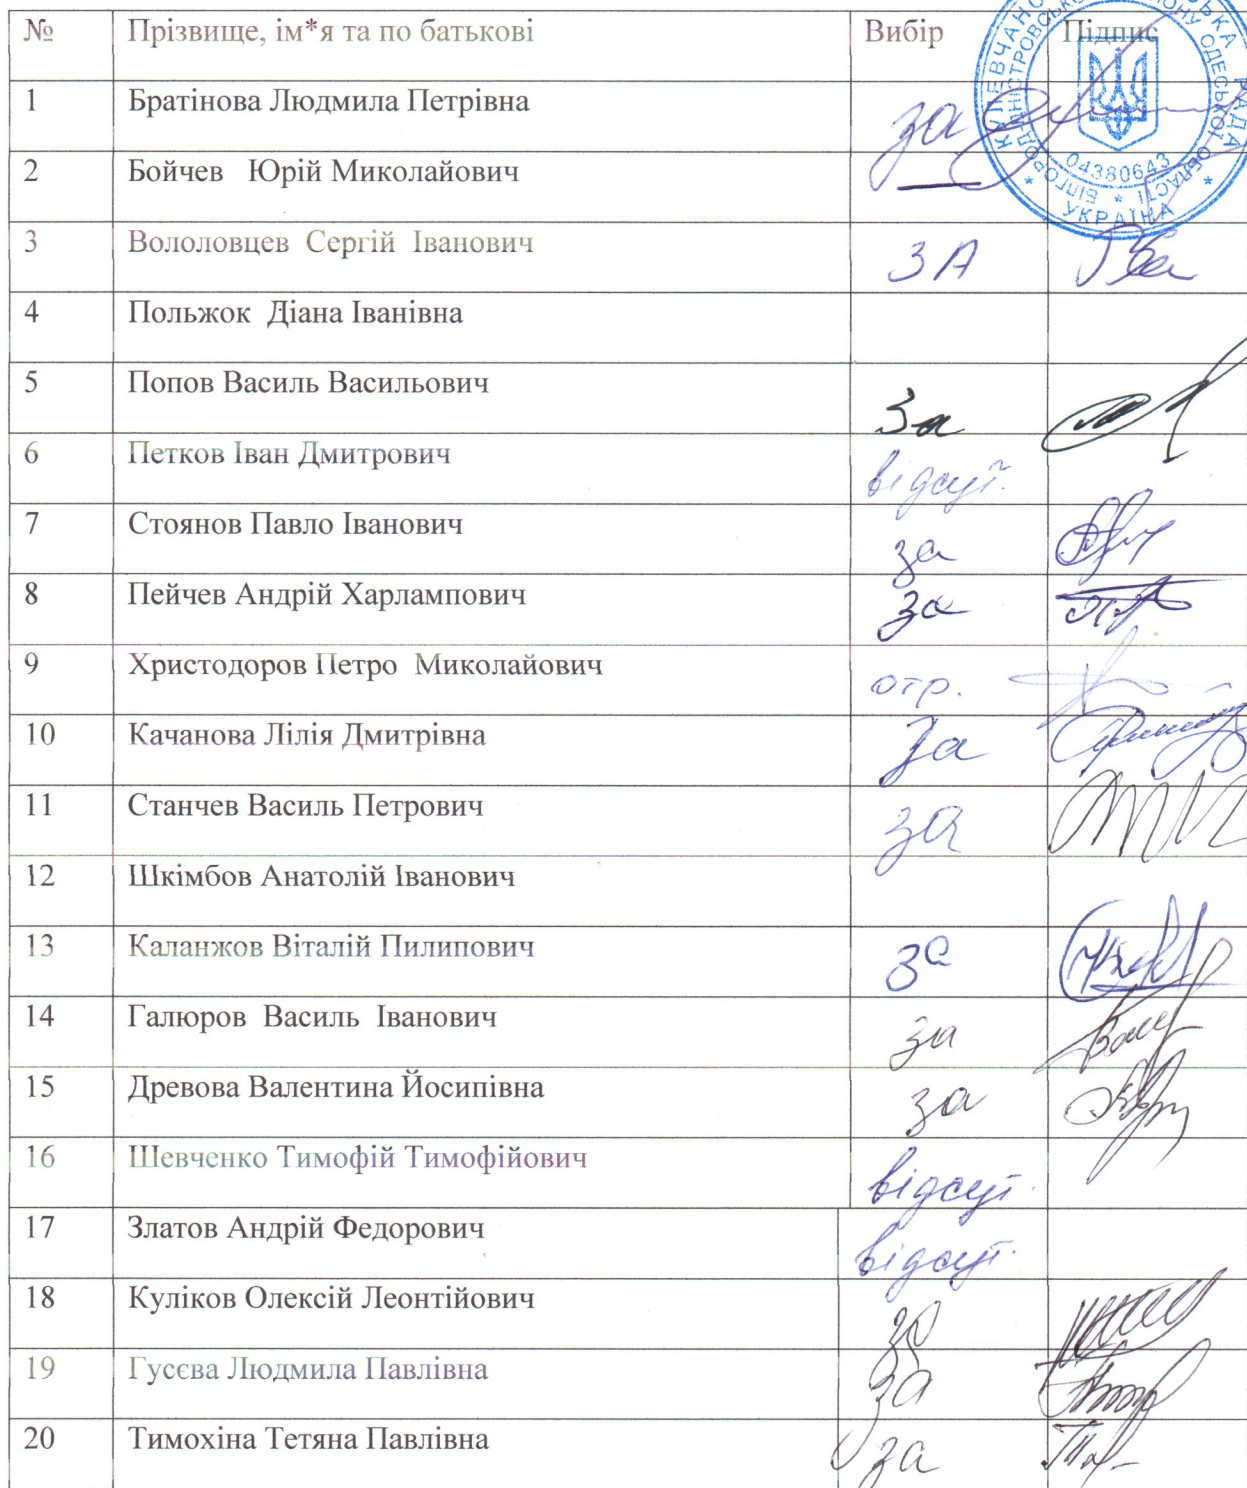 № Прізвище, ім*я та по батькові Вибір Підпис
1 Братінова Людмила Петрівна за
2 Бойчев Юрій Миколайович
3 Вололовцев Сергій Іванович ЗА
4 Польжок Діана Іванівна
5 Попов Василь Васильович За
6 Петков Іван Дмитрович відсут.
7 Стоянов Павло Іванович за
8 Пейчев Андрій Харлампович за
9 Христодоров Петро Миколайович отр.
10 Качанова Лілія Дмитрівна За
11 Станчев Василь Петрович за
12 Шкімбов Анатолій Іванович
13 Каланжов Віталій Пилипович за
14 Галюров Василь Іванович за
15 Древова Валентина Йосипівна за
16 Шевченко Тимофій Тимофійович відсут.
17 Златов Андрій Федорович відсут.
18 Куліков Олексій Леонтійович за
19 Гусєва Людмила Павлівна за
20 Тимохіна Тетяна Павлівна за
04380643
УКРАЇНА